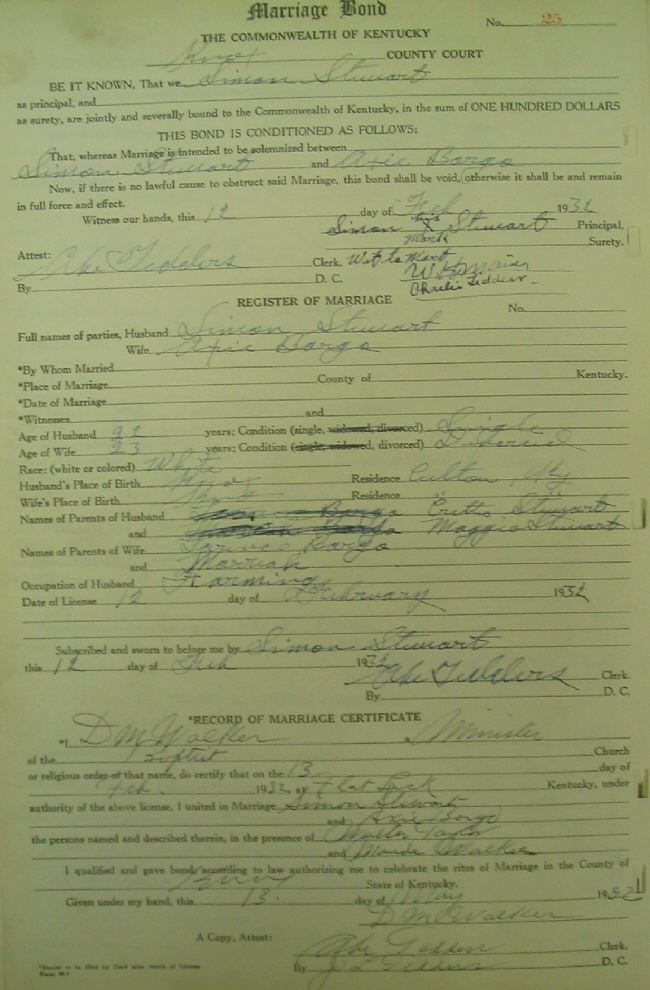 Marriage Bond
No. 25
THE COMMONWEALTH OF KENTUCKY
Knox COUNTY COURT
BE IT KNOWN, That we Simon Stewart
as principal, and
as surety, are jointly and severally bound to the Commonwealth of Kentucky, in the sum of ONE HUNDRED DOLLARS
THIS BOND IS CONDITIONED AS FOLLOWS:
That, whereas Marriage is intended to be solemnized between
Simon Stewart and Axie Bargo
Now, if there is no lawful cause to obstruct said Marriage, this bond shall be void, otherwise it shall be and remain
in full force and effect.
Witness our hands, this 12 day of Feb 1932
Simon his X mark Stewart Principal,
Surety.
Attest:
Abe Gedders Clerk. Wit to Mark
By D. C.
REGISTER OF MARRIAGE
No.
Full names of parties, Husband Simon Stewart
Wife Axie Bargo
*By Whom Married
*Place of Marriage County of Kentucky.
*Date of Marriage
*Witnesses and
Age of Husband 22 years; Condition (single, widowed, divorced) Single
Age of Wife 23 years; Condition (single, widowed, divorced) Divorced
Race: (white or colored) White
Husband's Place of Birth Knox Residence Ky
Wife's Place of Birth Knox Residence
Names of Parents of Husband Stewart
and Maggie Stewart
Names of Parents of Wife Bargo
and Marriah
Occupation of Husband Farming
Date of License 12 day of February 1932
Subscribed and sworn to before me by Simon Stewart
this 12 day of Feb 1932
Abe Gedders Clerk.
By D. C.
*RECORD OF MARRIAGE CERTIFICATE
*I, D M Walker Minister
of the Baptist Church
or religious order of that name, do certify that on the 13 day of
Feb. 1932, at Flat Lick Kentucky, under
authority of the above license, I united in Marriage Simon Stewart
and Axie Bargo
the persons named and described therein, in the presence of Walter Taylor
and Maude Walker
I qualified and gave bond according to law authorizing me to celebrate the rites of Marriage in the County of
Knox State of Kentucky.
Given under my hand, this 13 day of May 1932
D M Walker
A Copy, Attest: Abe Gedders Clerk.
By D. C.